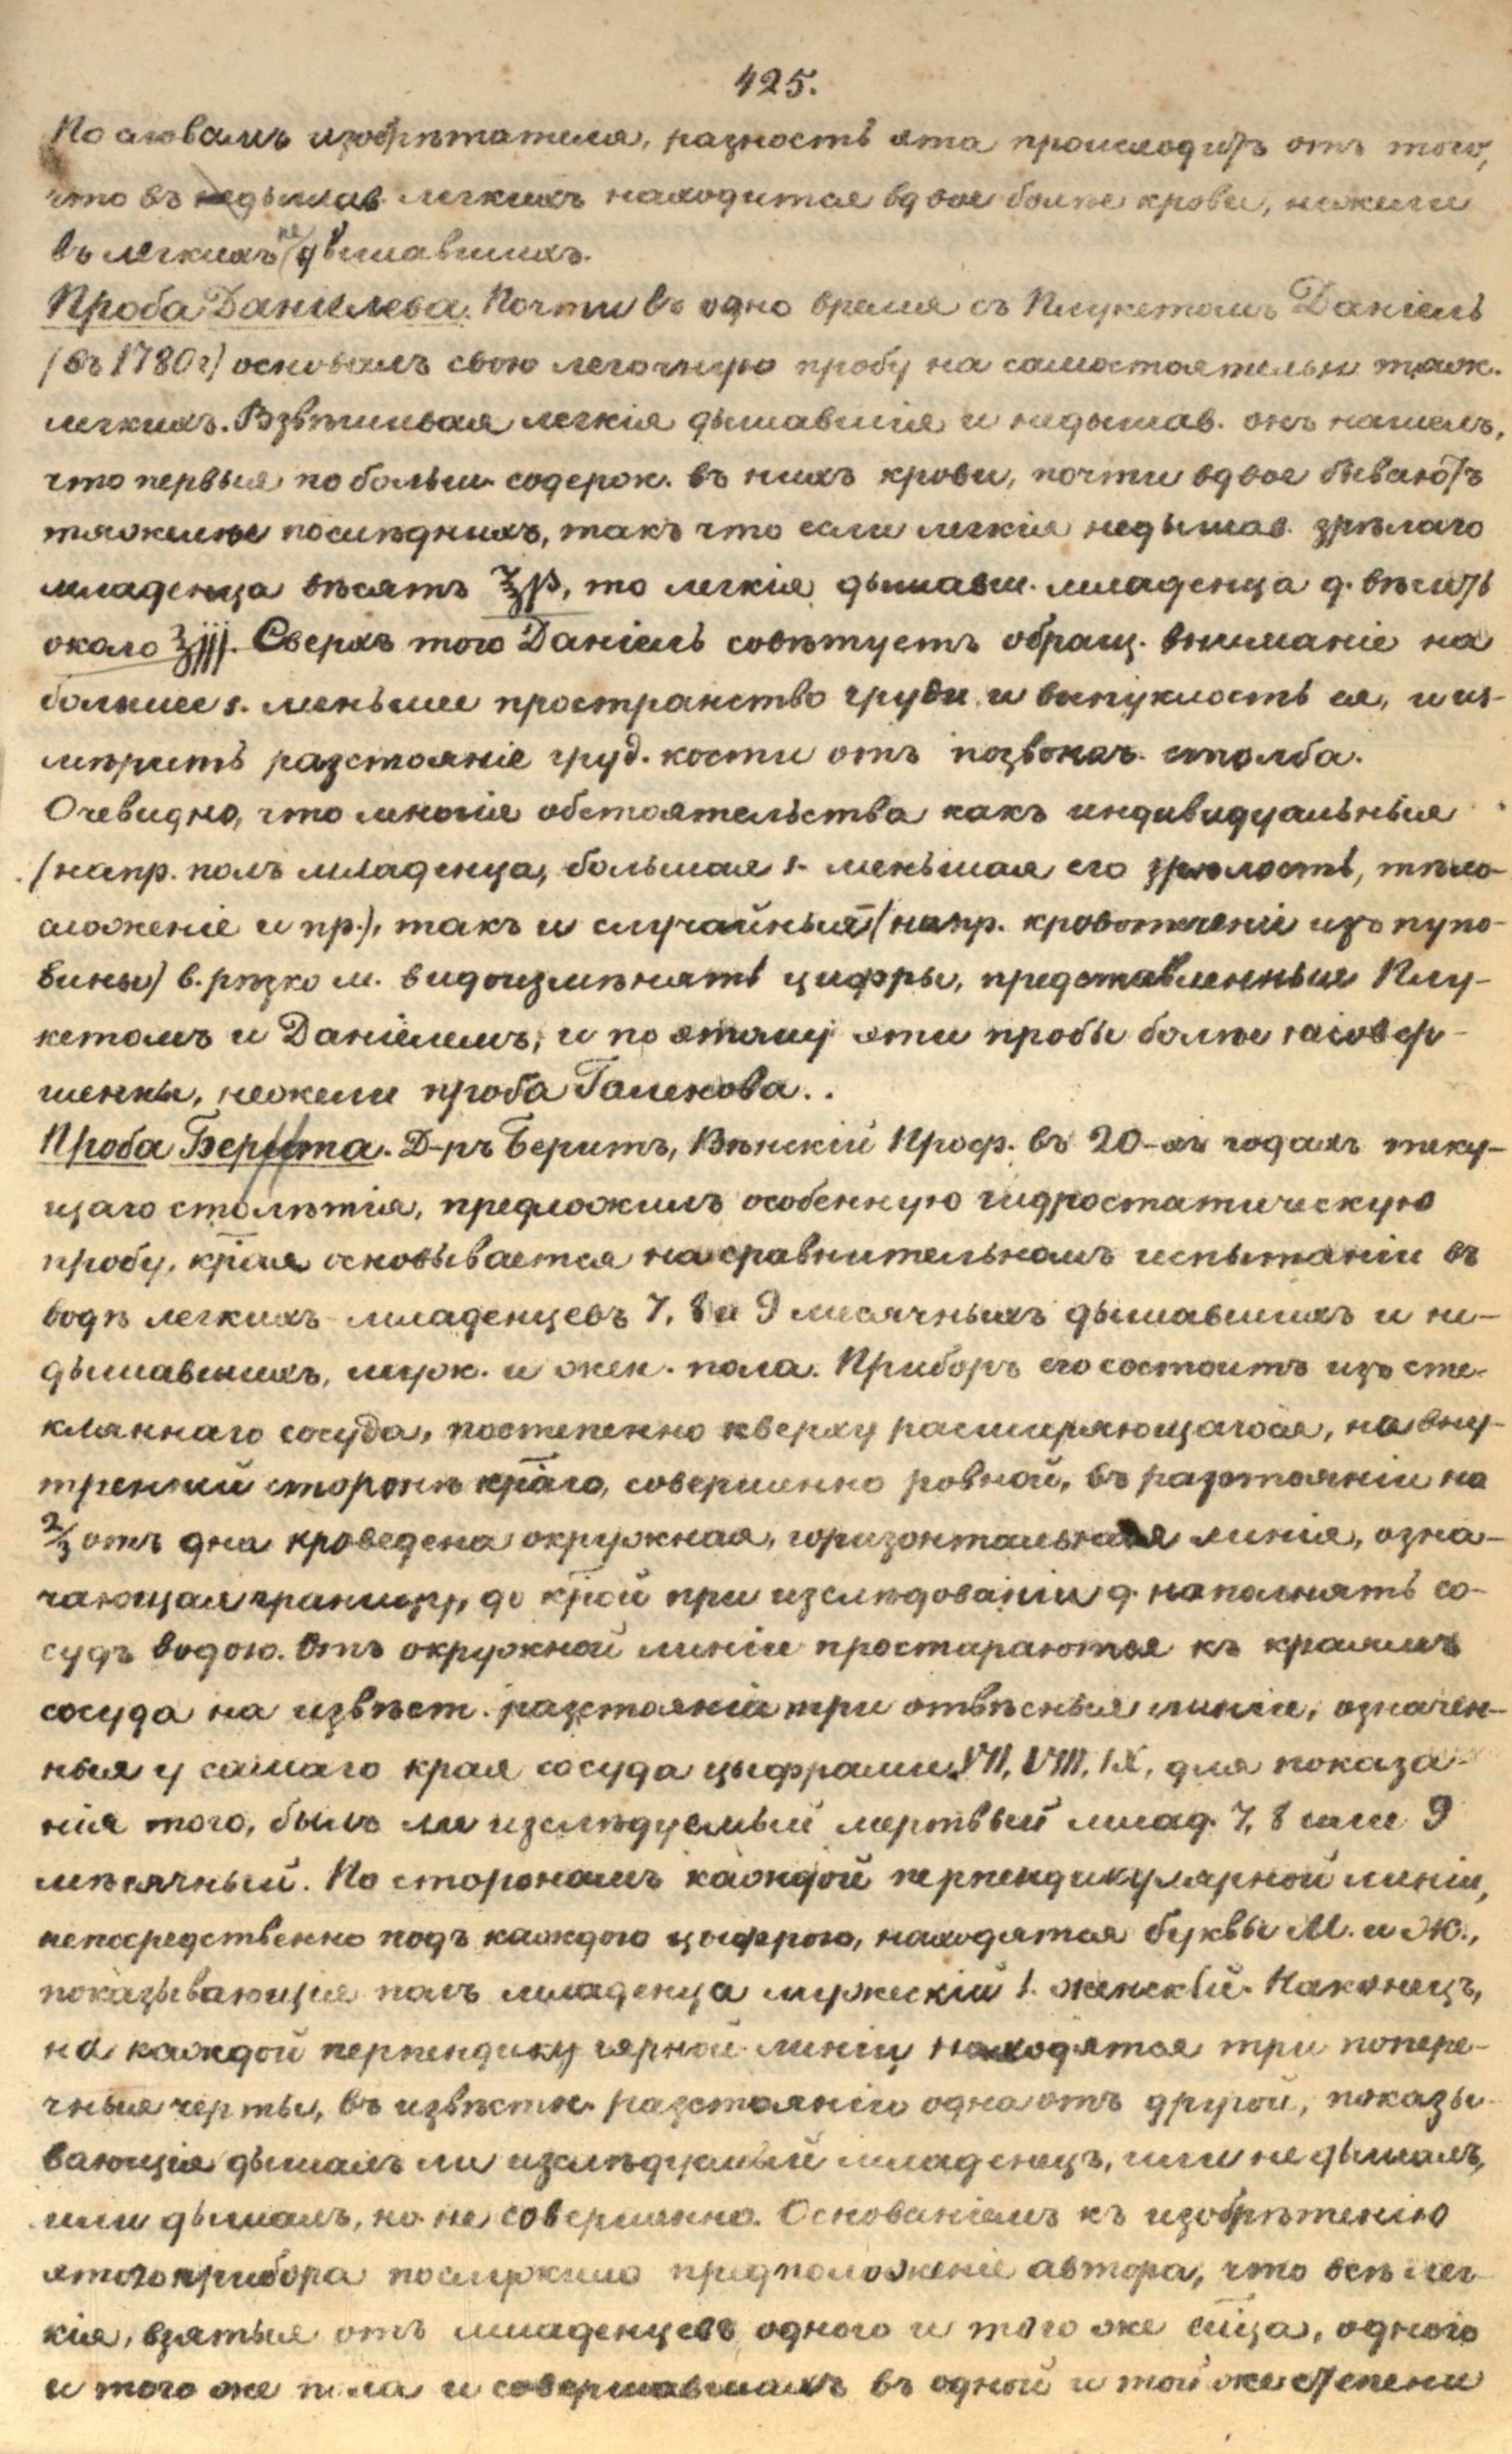 425.
По словамъ изобрѣтателя, разность эта происходитъ отъ того,
что въ недышав. легкихъ находится вдвое болѣе крови, нежели
въ легкихъ не дышавшихъ.
Проба Даніелева. Почти въ одно время съ Плукетомъ Даніель
(въ 1780 г) основалъ свою легочную пробу на самостоятельн. тяж.
легкихъ. Взвѣшивая легкія дышавшія и недышав. онъ нашелъ,
что первыя по больш. содерж. въ нихъ крови, почти вдвое бываютъ
тяжелѣе послѣднихъ, такъ что если легкія недышав. зрѣлаго
младенца вѣсятъ ℥jβ, то легкія дышавш. младенца д. вѣсить
около ℥jjj. Сверхъ того Даніель совѣтуетъ обращ. вниманіе на
большее s. меньшее пространство груди и выпуклость ея, и из-
мѣрить разстояніе груд. кости отъ позвоноч. столба.
Очевидно, что многія обстоятельства какъ индивидуальныя
(напр. полъ младенца, большая s. меньшая его зрѣлость, тѣло-
сложеніе и пр.), такъ и случайныя (напр. кровотеченіе изъ пупо-
вины) в. рѣзко м. видоизмѣнять цифры, представленныя Плу-
кетомъ и Даніелемъ, и по этому эти пробы болѣе несовер-
шенны, нежели проба Галенова..
Проба Бернта. Д-ръ Бернтъ, Вѣнскій Проф. въ 20-хъ годахъ теку-
щаго столѣтія, предложилъ особенную гидростатическую
пробу, края основывается на сравнительномъ испытаніи въ
водѣ легкихъ младенцевъ 7, 8 и 9 мѣсячныхъ дышавшихъ и не-
дышавшихъ, муж. и жен. пола. Приборъ его состоитъ изъ сте-
кляннаго сосуда, постепенно кверху расширяющагося, на вну-
тренней сторонѣ краго, совершенно ровной, въ разстояніи на
2/3 отъ дна проведена окружная, горизонтальная линія, озна-
чающая границу, до крой при изслѣдованіи д. наполнять со-
судъ водою. Отъ окружной линіи простираются къ краямъ
сосуда на извѣст. разстояніи три отвѣсныя линіи, означен-
ныя у самаго края сосуда цыфрами VII, VIII, IX, для показа-
нія того, былъ ли изслѣдуемый мертвый млад. 7, 8 или 9
мѣсячный. По сторонамъ каждой перпендикулярной линіи,
непосредственно подъ каждою цыфрою, находятся буквы М. и Ж.,
показывающія полъ младенца мужескій s. женскій. Наконецъ,
на каждой перпендикулярной линіи находятся три попере-
чныя черты, въ извѣстн. разстояніи одна отъ другой, показы-
вающія дышалъ ли изслѣдуемый младенецъ, или не дышалъ,
или дышалъ, но не совершенно. Основаніемъ къ изобрѣтенію
этого прибора послужило предположеніе автора, что всѣ лег-
кія, взятыя отъ младенцевъ одного и того же мѣсца, одного
и того же пола и совершавшихъ въ одной и той же степени